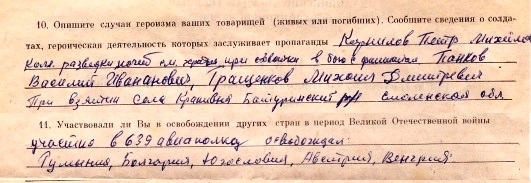 10. Опишите случаи героизма ваших товарищей (живых или погибших). Сообщите сведения о солда-
тах, героическая деятельность которых заслуживает пропаганды Корнилов Петр Михайло
Ком. разведки погиб см. героя при в бою с фашистами Панков
Василий Иванович, Гращенков Михаил Дмитревич
При взятии села Крапивна Байдуринский р-н Смоленская обл
11. Участвовали ли Вы в освобождении других стран в период Великой Отечественной войны
участие в 639 авиаполку освобождал:
Румыния, Болгария, Югославия, Австрия, Венгрия: